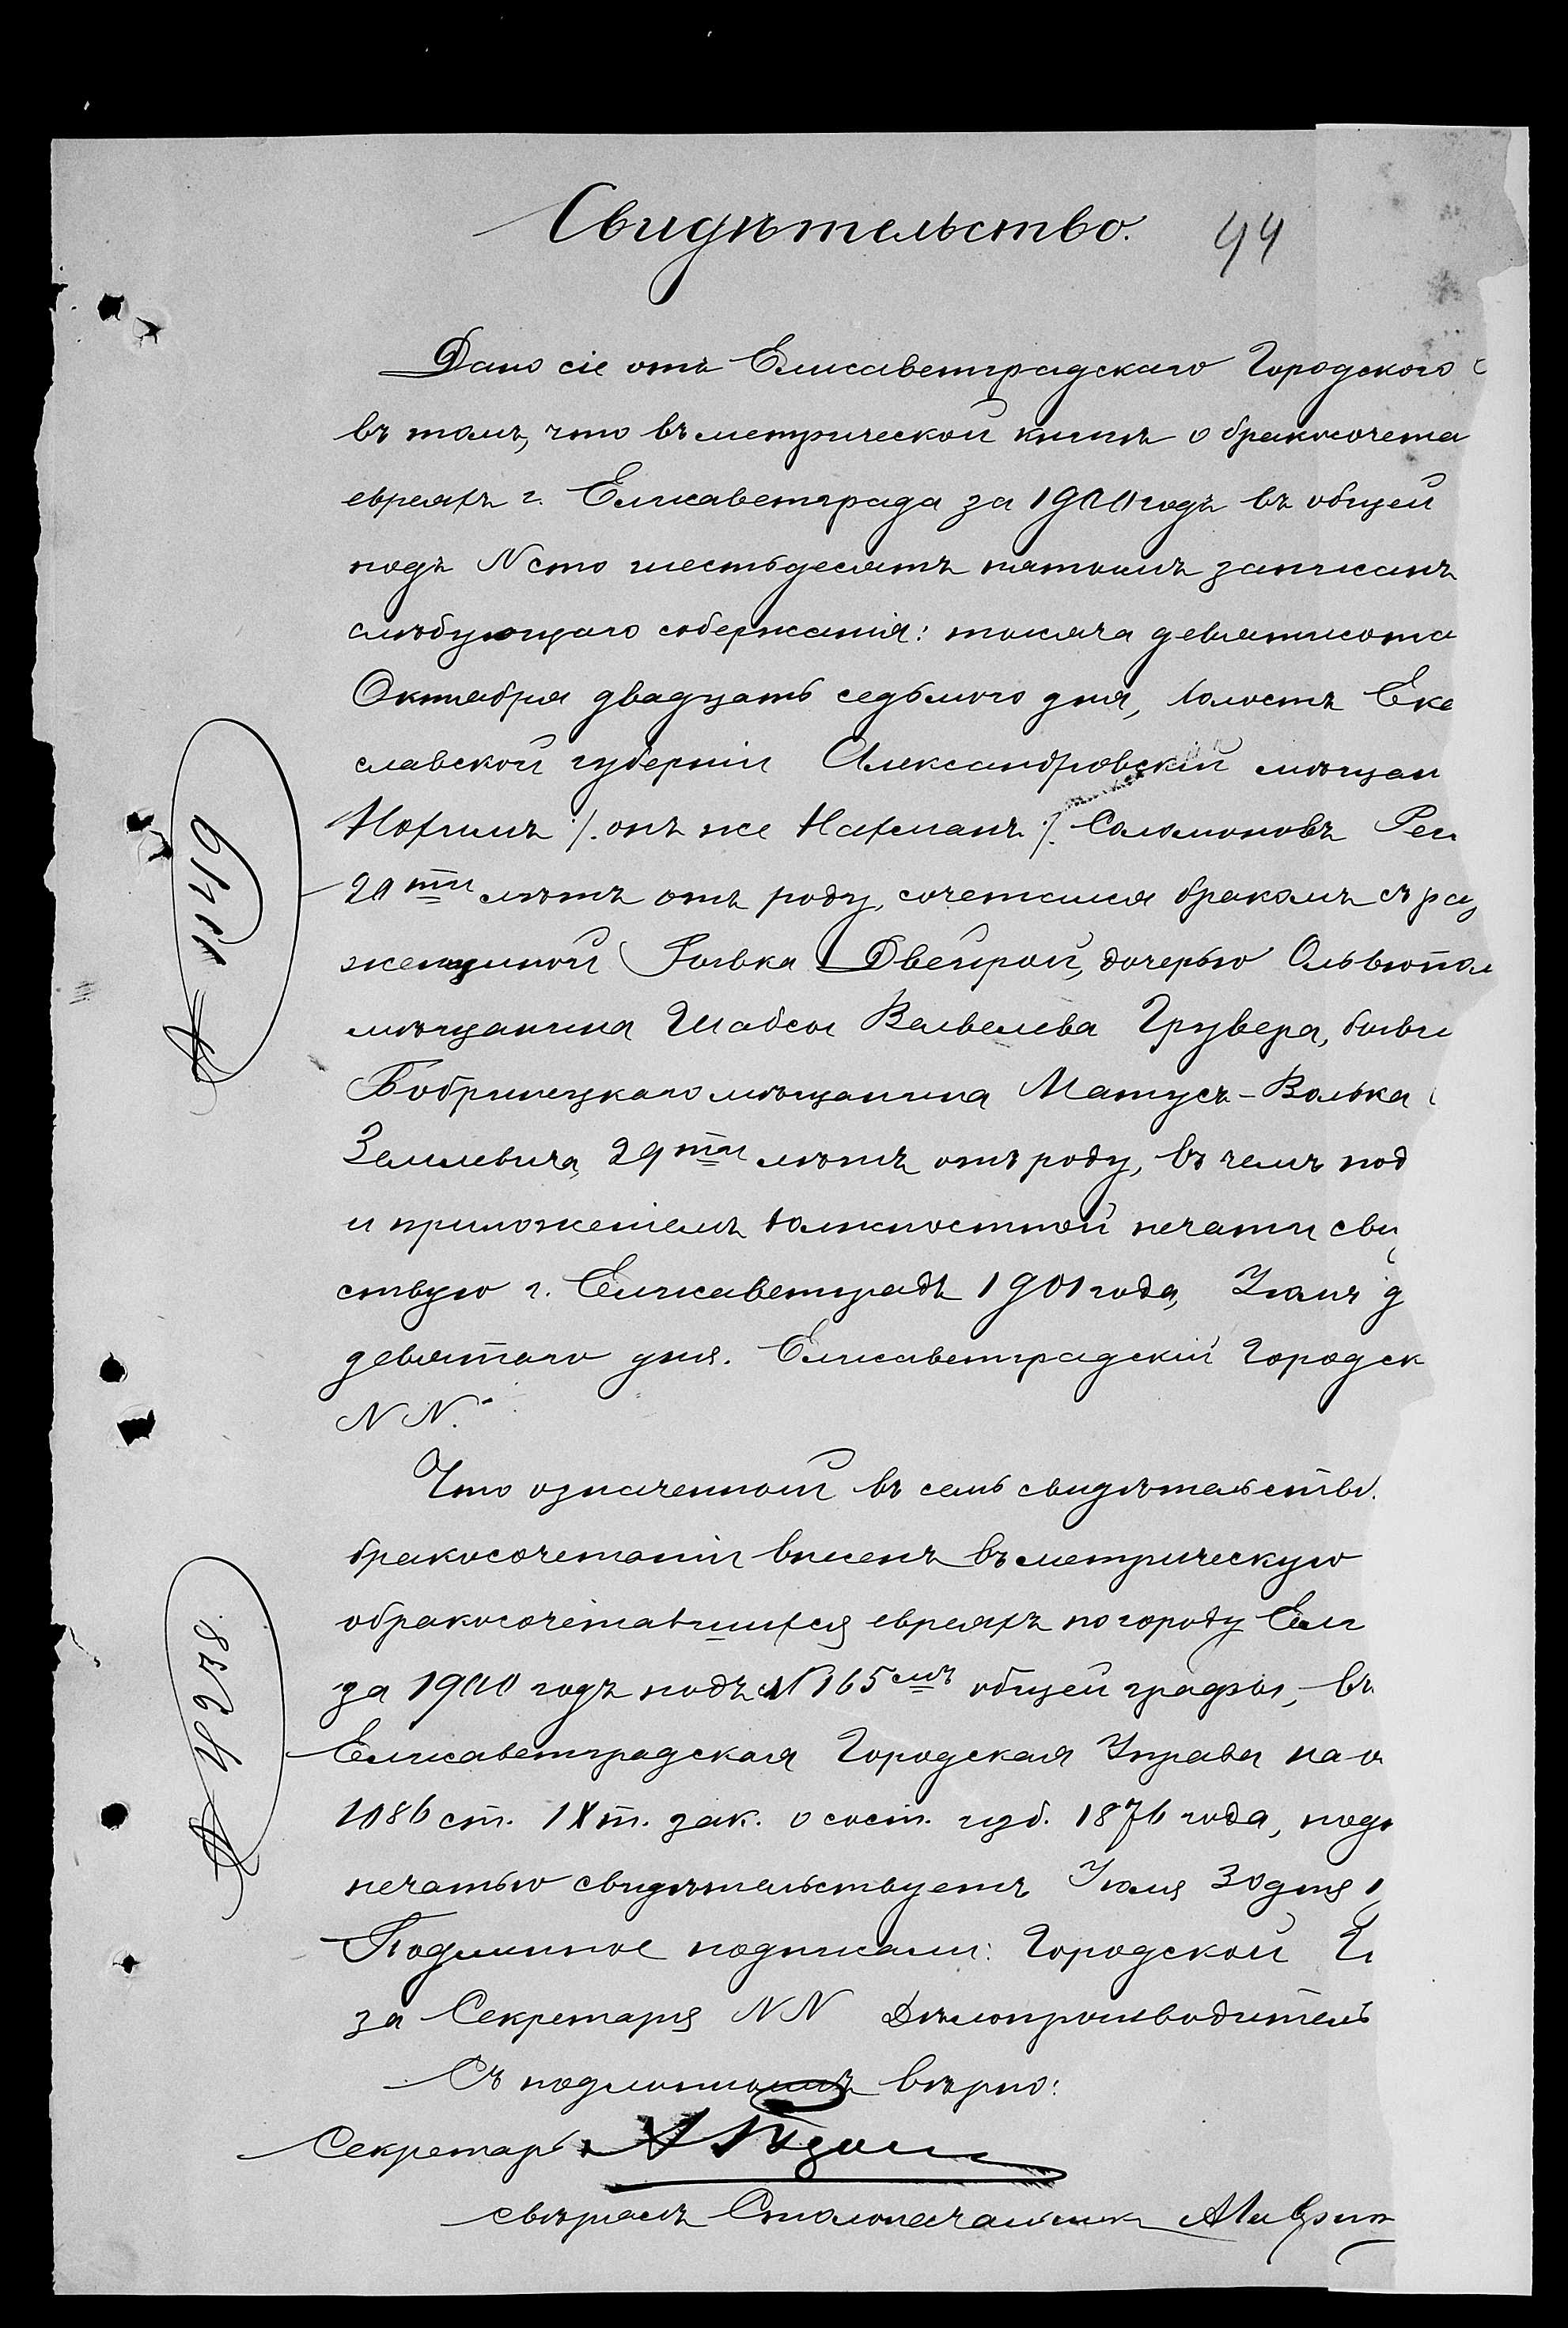 Свидѣтельство. 44
Дано сіе отъ Елисаветградскаго Городского
въ томъ, что въ метрической книгѣ о бракосочета
евреяхъ г. Елисаветграда за 1900 годъ въ общей
подъ N сто шестьдесятъ пятымъ записанъ
слѣдующаго содержанія: тысяча девятисота
Октября двадцать седьмого дня, холостъ Ека
славской губерніи Александровскій мѣщан
Нохимъ /. онъ же Нахманъ ./ Соломоновъ
20 ти лѣтъ отъ роду, сочетался бракомъ съ раз
женщиной Ривка Двейрой, дочерью Ольвіопол
мѣщанина Шабсы Вельвелева Грувера, бывш
Бобринецкаго мѣщанина Матусъ-Волька
Землевича, 29 ти лѣтъ отъ роду, въ чемъ под
и приложеніемъ должностной печати сви
ствую г. Елисаветградъ 1901 года, Іюля д
девятаго дня. Елисаветградскій Городск
N N.
Что означенный въ семъ свидѣтельствѣ
бракосочетаніи внесенъ въ метрическую
о бракосочетавшихся евреяхъ по городу Ели
за 1900 годъ подъ N 165 мъ общей графы, въ
Елисаветградская Городская Управа на о
1086 ст. IX т. зак. о сост. изд. 1876 года, подп
печатью свидѣтельствуетъ Іюля 30 дня 1
Подлинное подписали: Городской
за Секретаря N N Дѣлопроизводитель
Съ подлиннымъ вѣрно:
Секретарь
свѣрялъ Столоначальникъ
№ 4238.